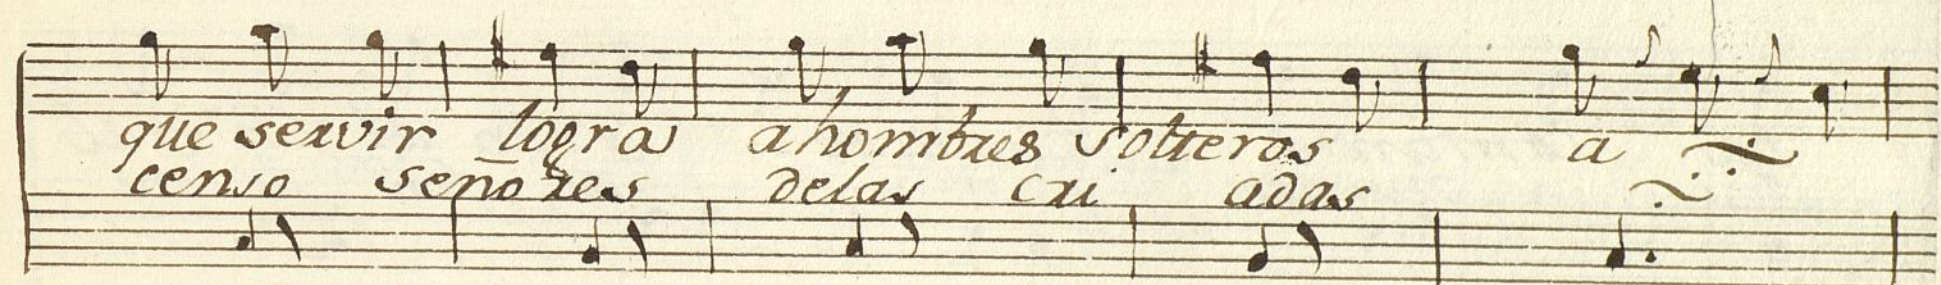 que servir logra a hombres solteros a
censo senores delas cri adas